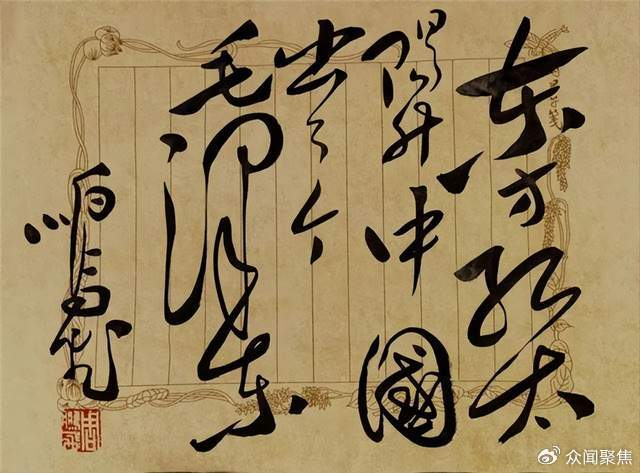 东方红太
阳升中国
出了个
毛泽东
众闻聚焦